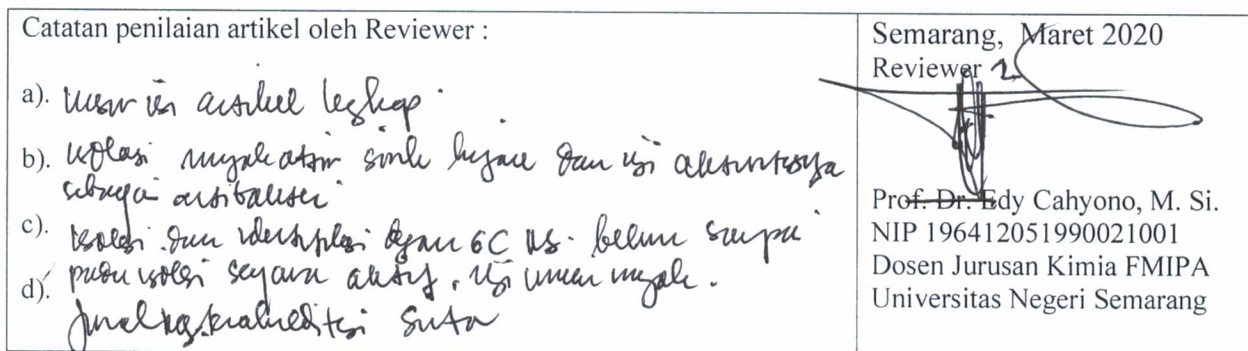 Catatan penilaian artikel oleh Reviewer :
a). Unsur isi artikel lengkap.
b). Isolasi minyak atsiri sirih hijau dan uji aktivitasnya
sebagai antibakteri
c). Isolasi dan identifikasi dgn GC MS. belum sampai
d). pada isolasi senyawa aktif, uji minyak.
Jurnal Nas. terakreditasi Sinta
Semarang, Maret 2020
Reviewer 2
Prof. Dr. Edy Cahyono, M. Si.
NIP 196412051990021001
Dosen Jurusan Kimia FMIPA
Universitas Negeri Semarang